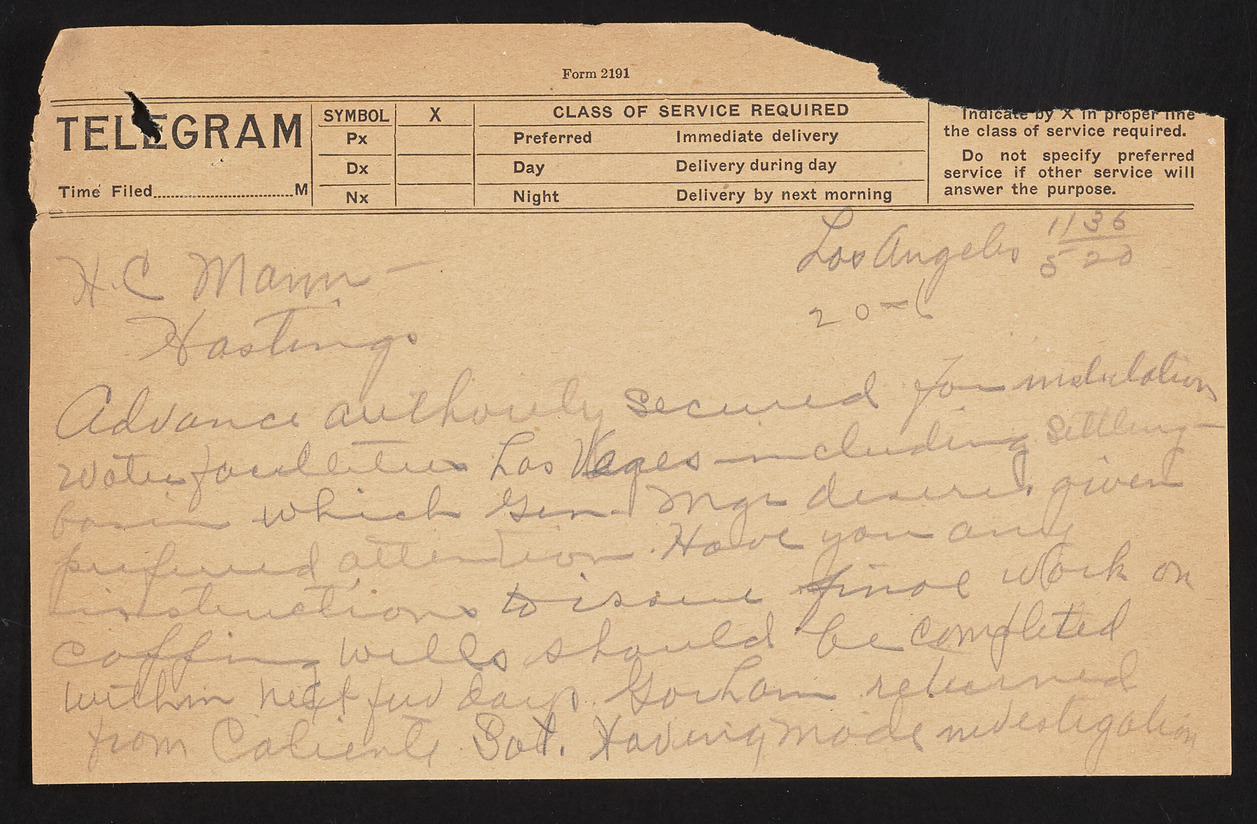 Form 2191
TELEGRAM
Time Filed M
SYMBOL X CLASS OF SERVICE REQUIRED
Px Preferred Immediate delivery
Dx Day Delivery during day
Nx Night Delivery by next morning
Indicate by X in proper line
the class of service required.
Do not specify preferred
service if other service will
answer the purpose.
Los Angeles 1136
520
H.C Mann –
20-6
Hastings
Advance authority secured for installation
water facilities Las Vegas including settling-
basin which Gen Mgr desires given
preferred attention. Have you any
instructions to issue final work on
coffing wells should be completed
within next few days. Gorham returned
from Caliente Sat. Having made investigation